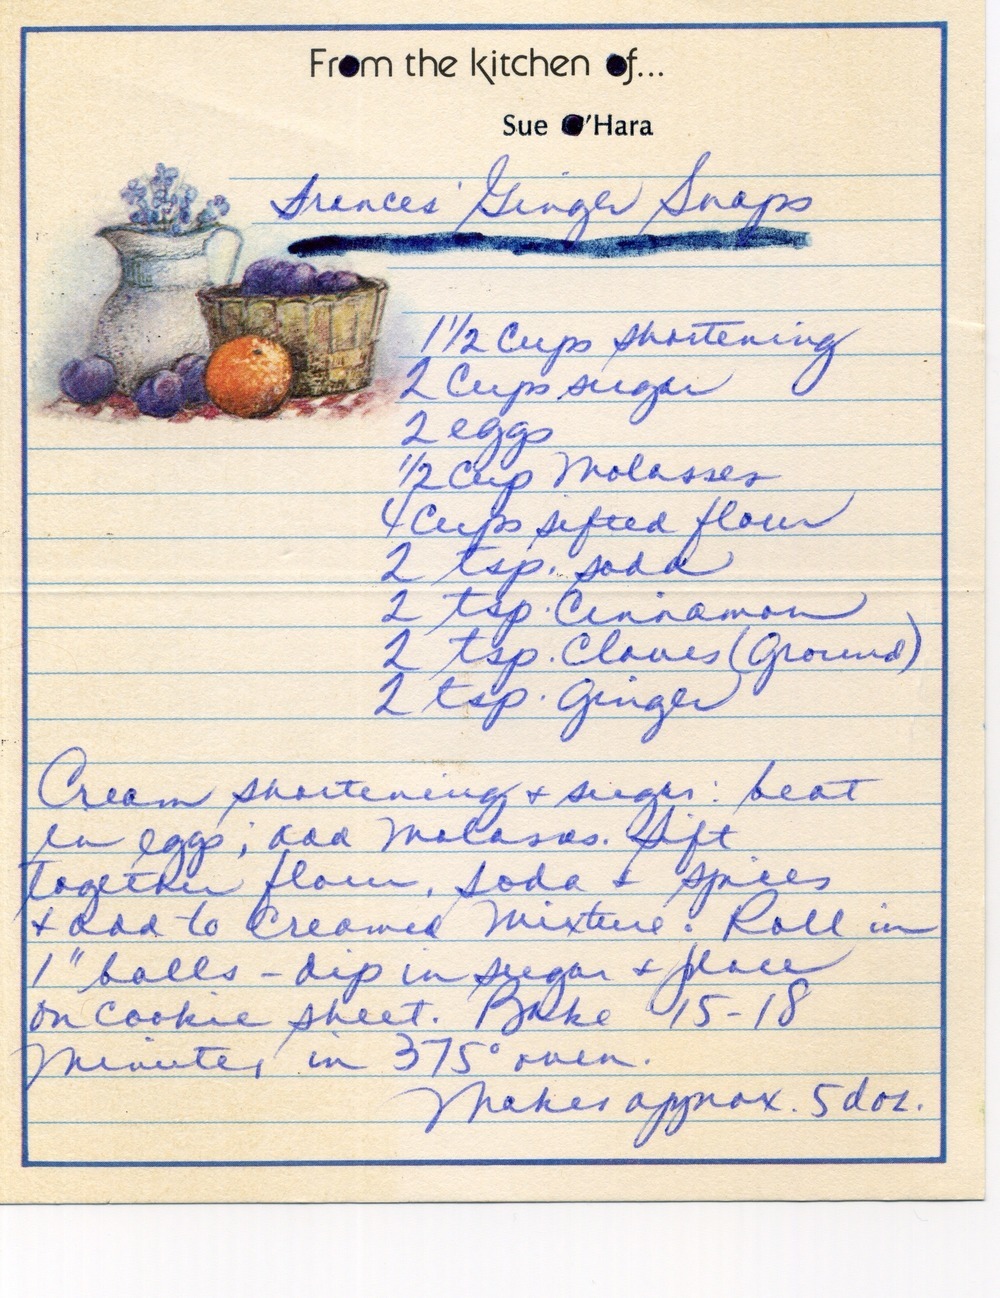 From the kitchen of...
Sue O'Hara
Frances' Ginger Snaps
1 1/2 Cups shortening
2 Cups sugar
2 eggs
1/2 Cup Molasses
4 Cups sifted flour
2 tsp. soda
2 tsp. Cinnamon
2 tsp. Cloves (Ground)
2 tsp. Ginger
Cream shortening & sugar: beat
in eggs; add Molasses. Sift
together flour, soda & spices
& add to Creamed Mixture. Roll in
1" balls - dip in sugar & place
on cookie sheet. Bake 15-18
Minutes in 375° oven.
Makes approx. 5 doz.